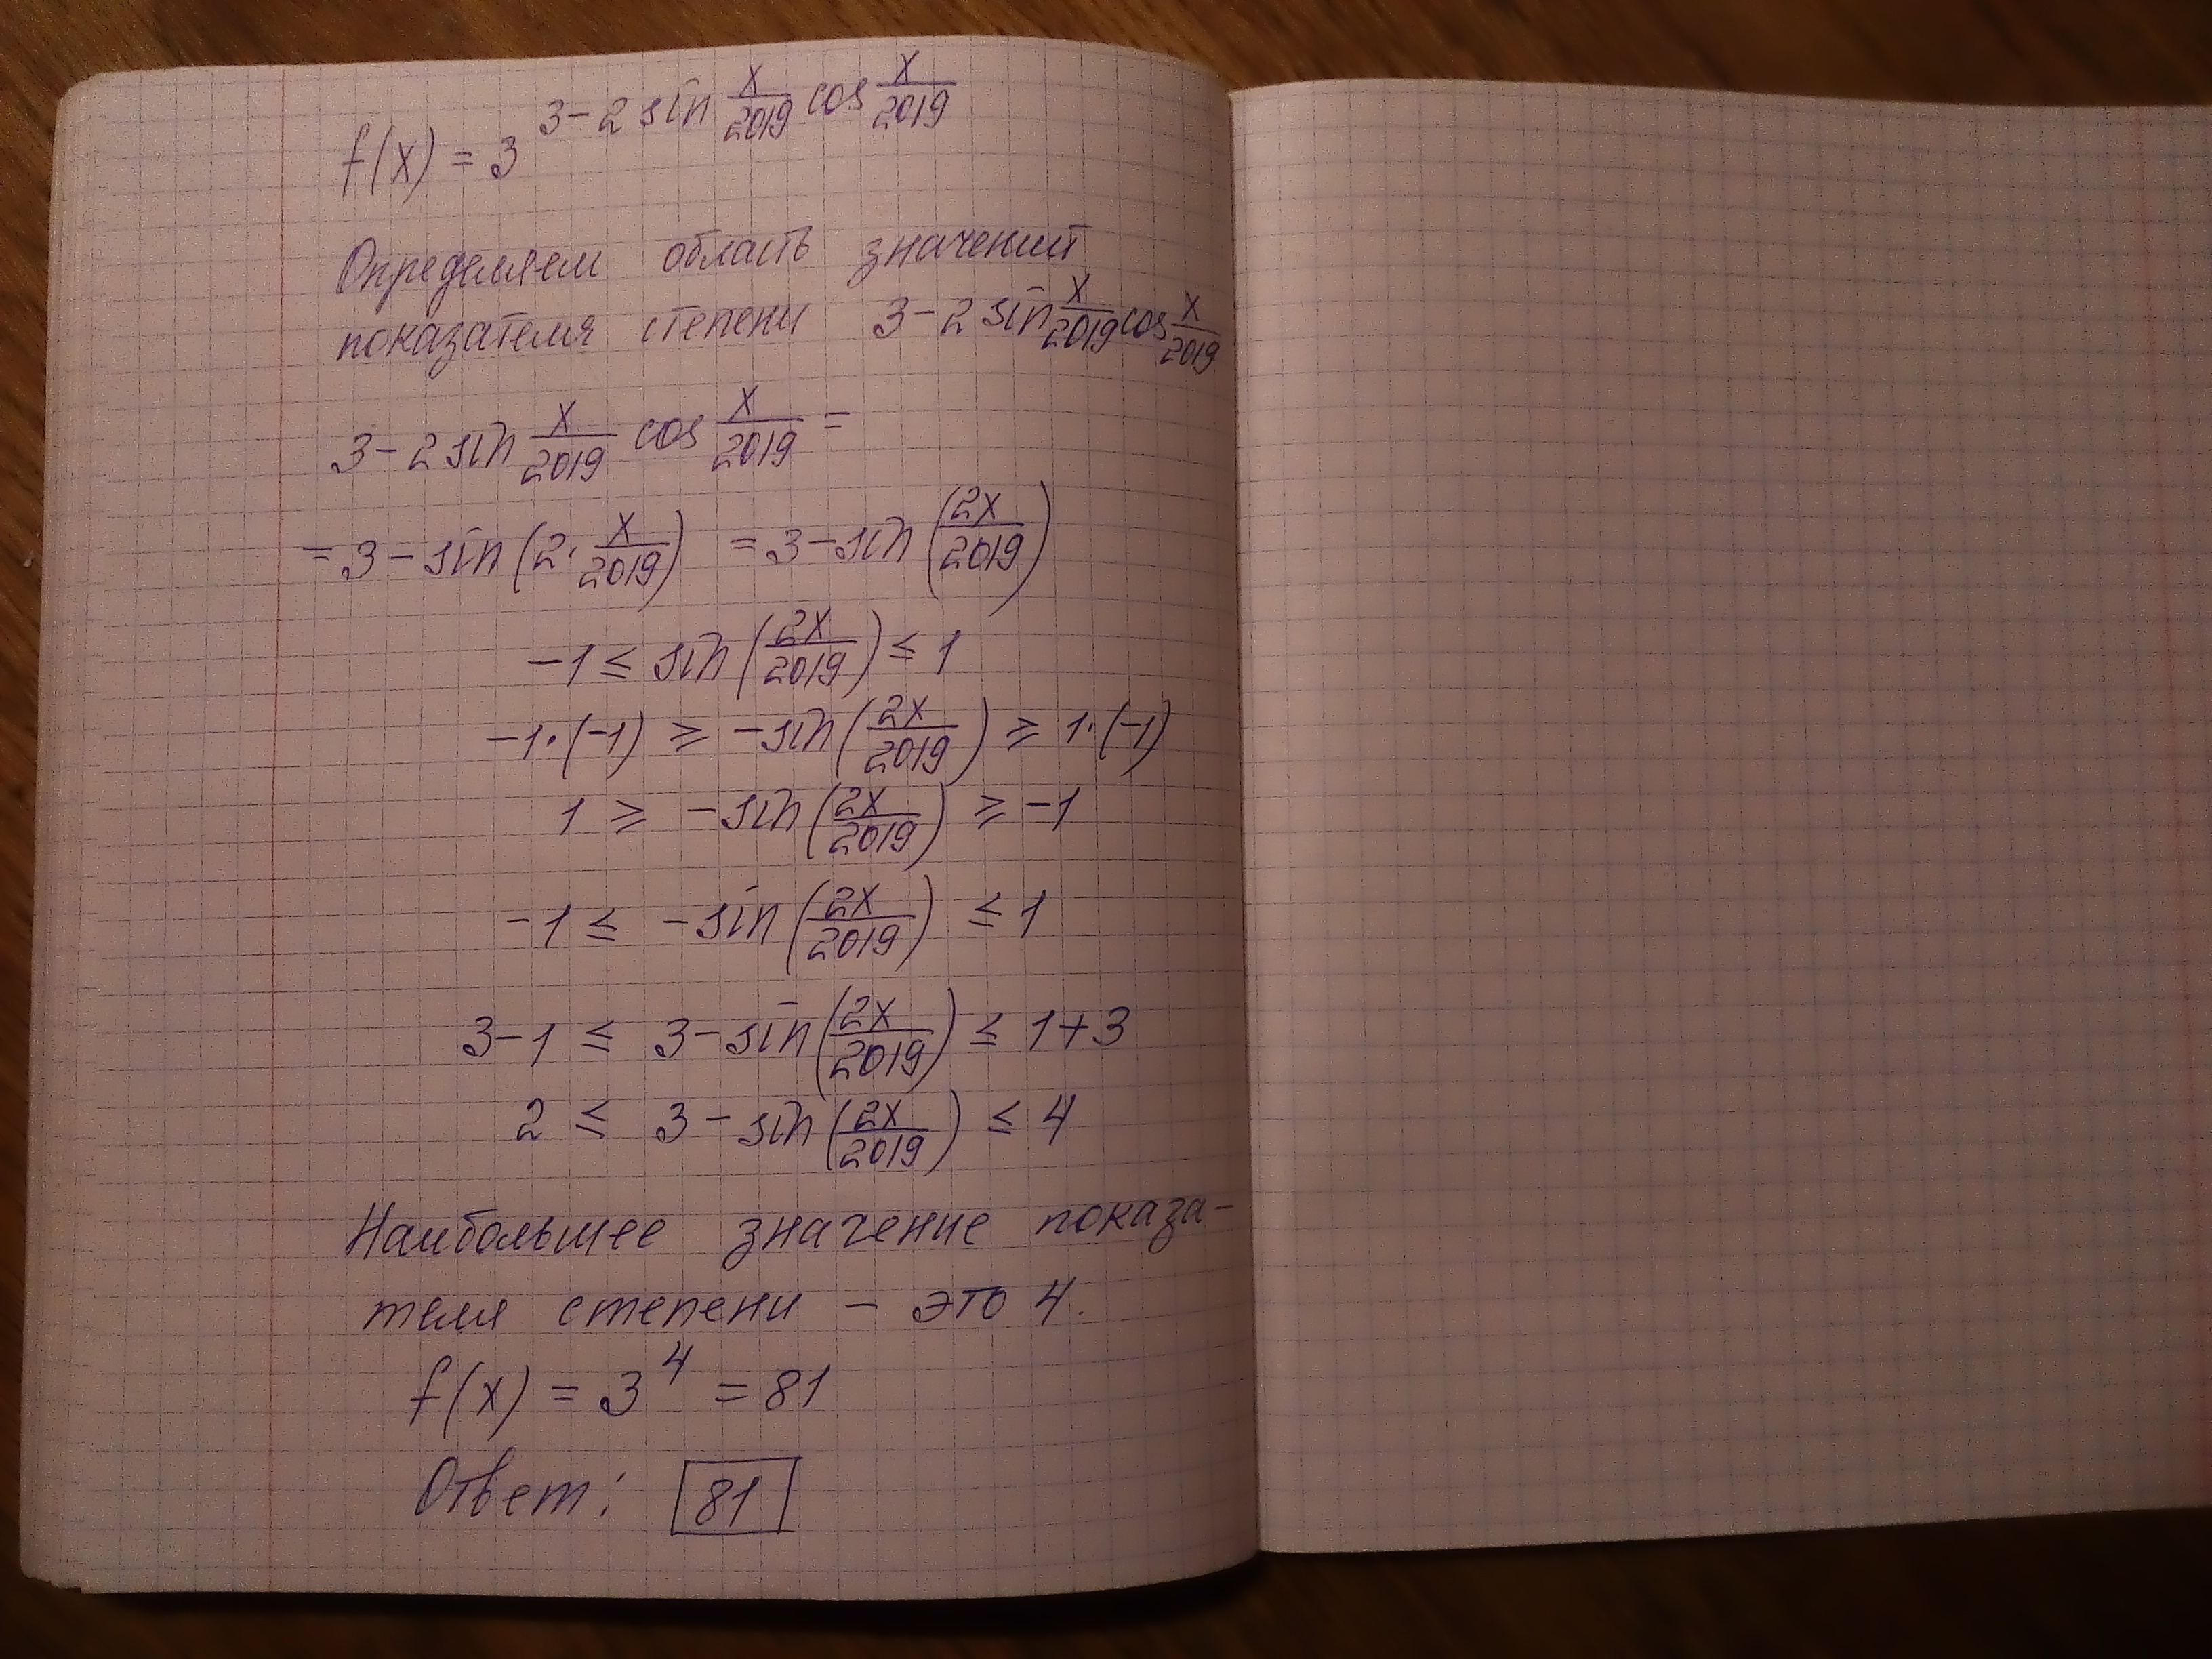 f(x) = 3^{3 - 2 sin \frac{x}{2019} cos \frac{x}{2019}}
Определяем область значений
показателя степени 3 - 2 sin \frac{x}{2019} cos \frac{x}{2019}
3 - 2 sin \frac{x}{2019} cos \frac{x}{2019} =
= 3 - sin (2 · \frac{x}{2019}) = 3 - sin (\frac{2x}{2019})
-1 ≤ sin (\frac{2x}{2019}) ≤ 1
-1 · (-1) ≥ - sin (\frac{2x}{2019}) ≥ 1 · (-1)
1 ≥ - sin (\frac{2x}{2019}) ≥ -1
-1 ≤ - sin (\frac{2x}{2019}) ≤ 1
3 - 1 ≤ 3 - sin (\frac{2x}{2019}) ≤ 1 + 3
2 ≤ 3 - sin (\frac{2x}{2019}) ≤ 4
Наибольшее значение показа-
теля степени - это 4.
f(x) = 3^4 = 81
Ответ: 81